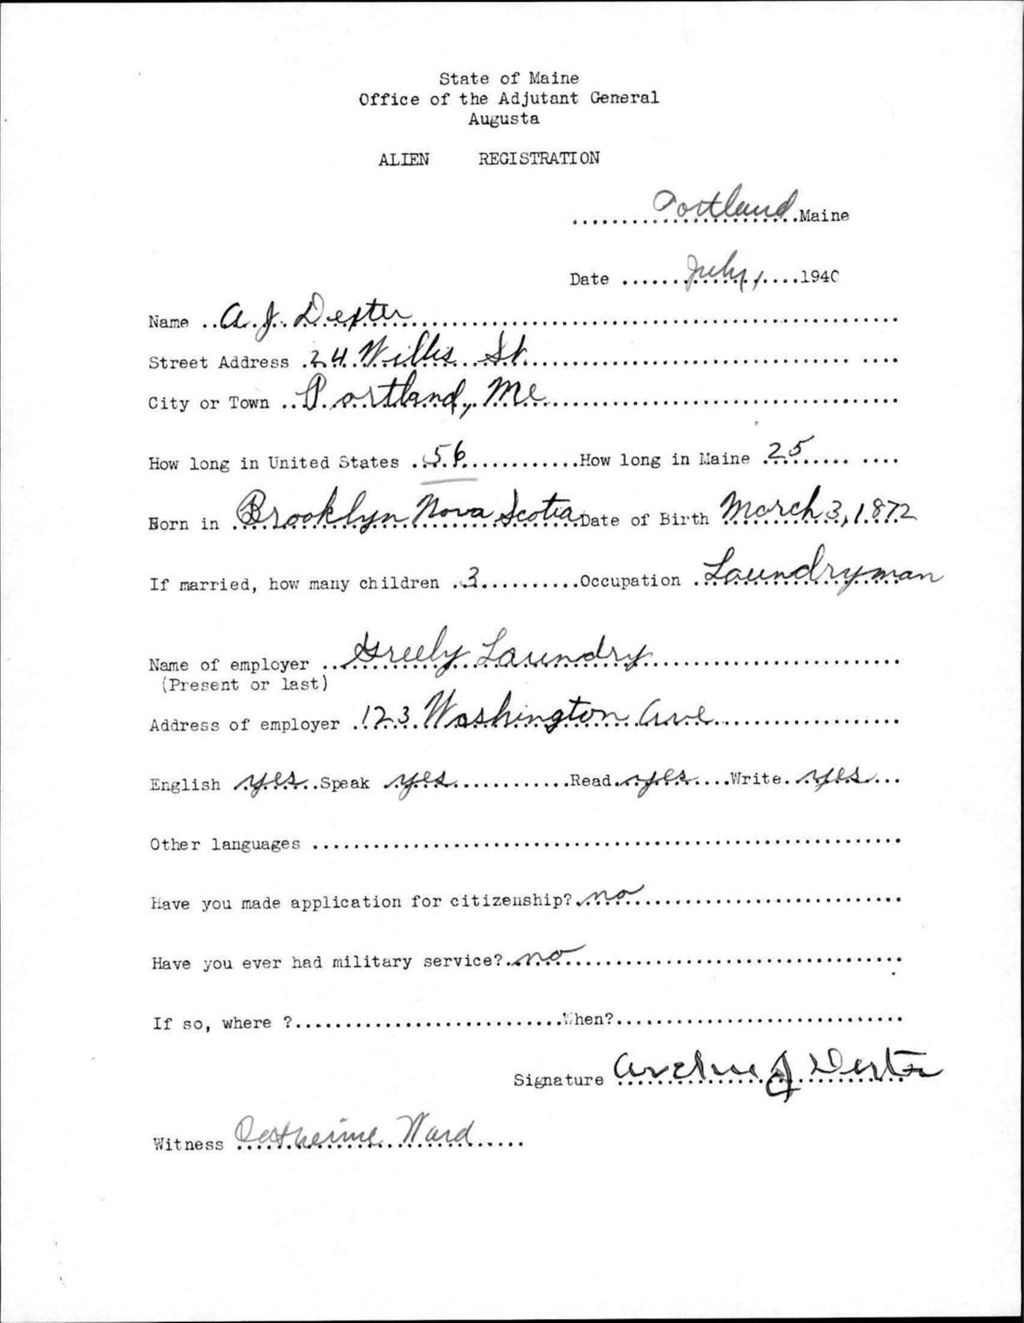 State of Maine
Office of the Adjutant General
Augusta
ALIEN REGISTRATION
Portland Maine
Date July 1 1940
Name A. J. Dexter
Street Address 24 Willis St.
City or Town Portland, Me
How long in United States 56 How long in Maine 25
Born in Brooklyn Nova Scotia Date of Birth March 3, 1872
If married, how many children 3 Occupation Laundryman
Name of employer Greely Laundry
(Present or last)
Address of employer 123 Washington Ave
English yes Speak yes Read yes Write yes
Other languages
Have you made application for citizenship? no
Have you ever had military service? no
If so, where ? When?
Signature J Dexter
Witness Catherine Ward